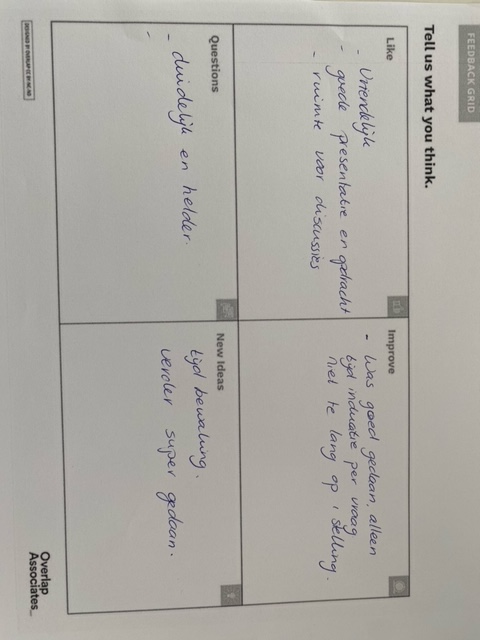 FEEDBACK GRID
Tell us what you think.
Like
- Vriendelijk
- goede presentatie en opdracht
- ruimte voor discussies
Improve
- Was goed gedaan, alleen
tijd indicatie per vraag
niet te lang op 1 stelling.
Questions
- duidelijk en helder.
-
New Ideas
tijd bewaking.
verder super gedaan.
Overlap
Associates_